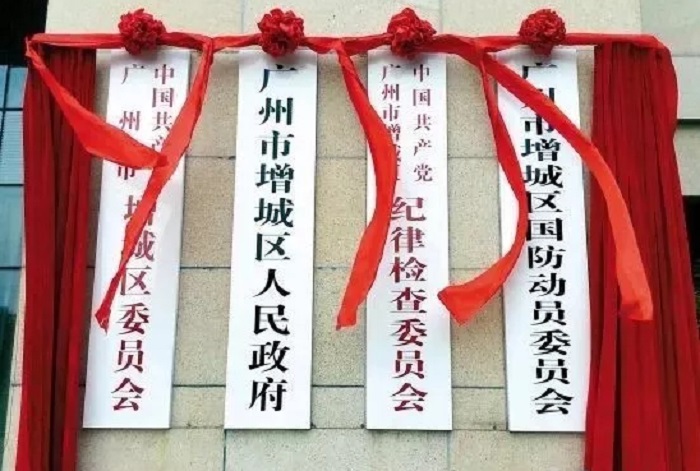 中国共产党
广州市增城区委员会
广州市增城区人民政府
中国共产党
广州市增城区
纪律检查委员会
广州市增城区国防动员委员会